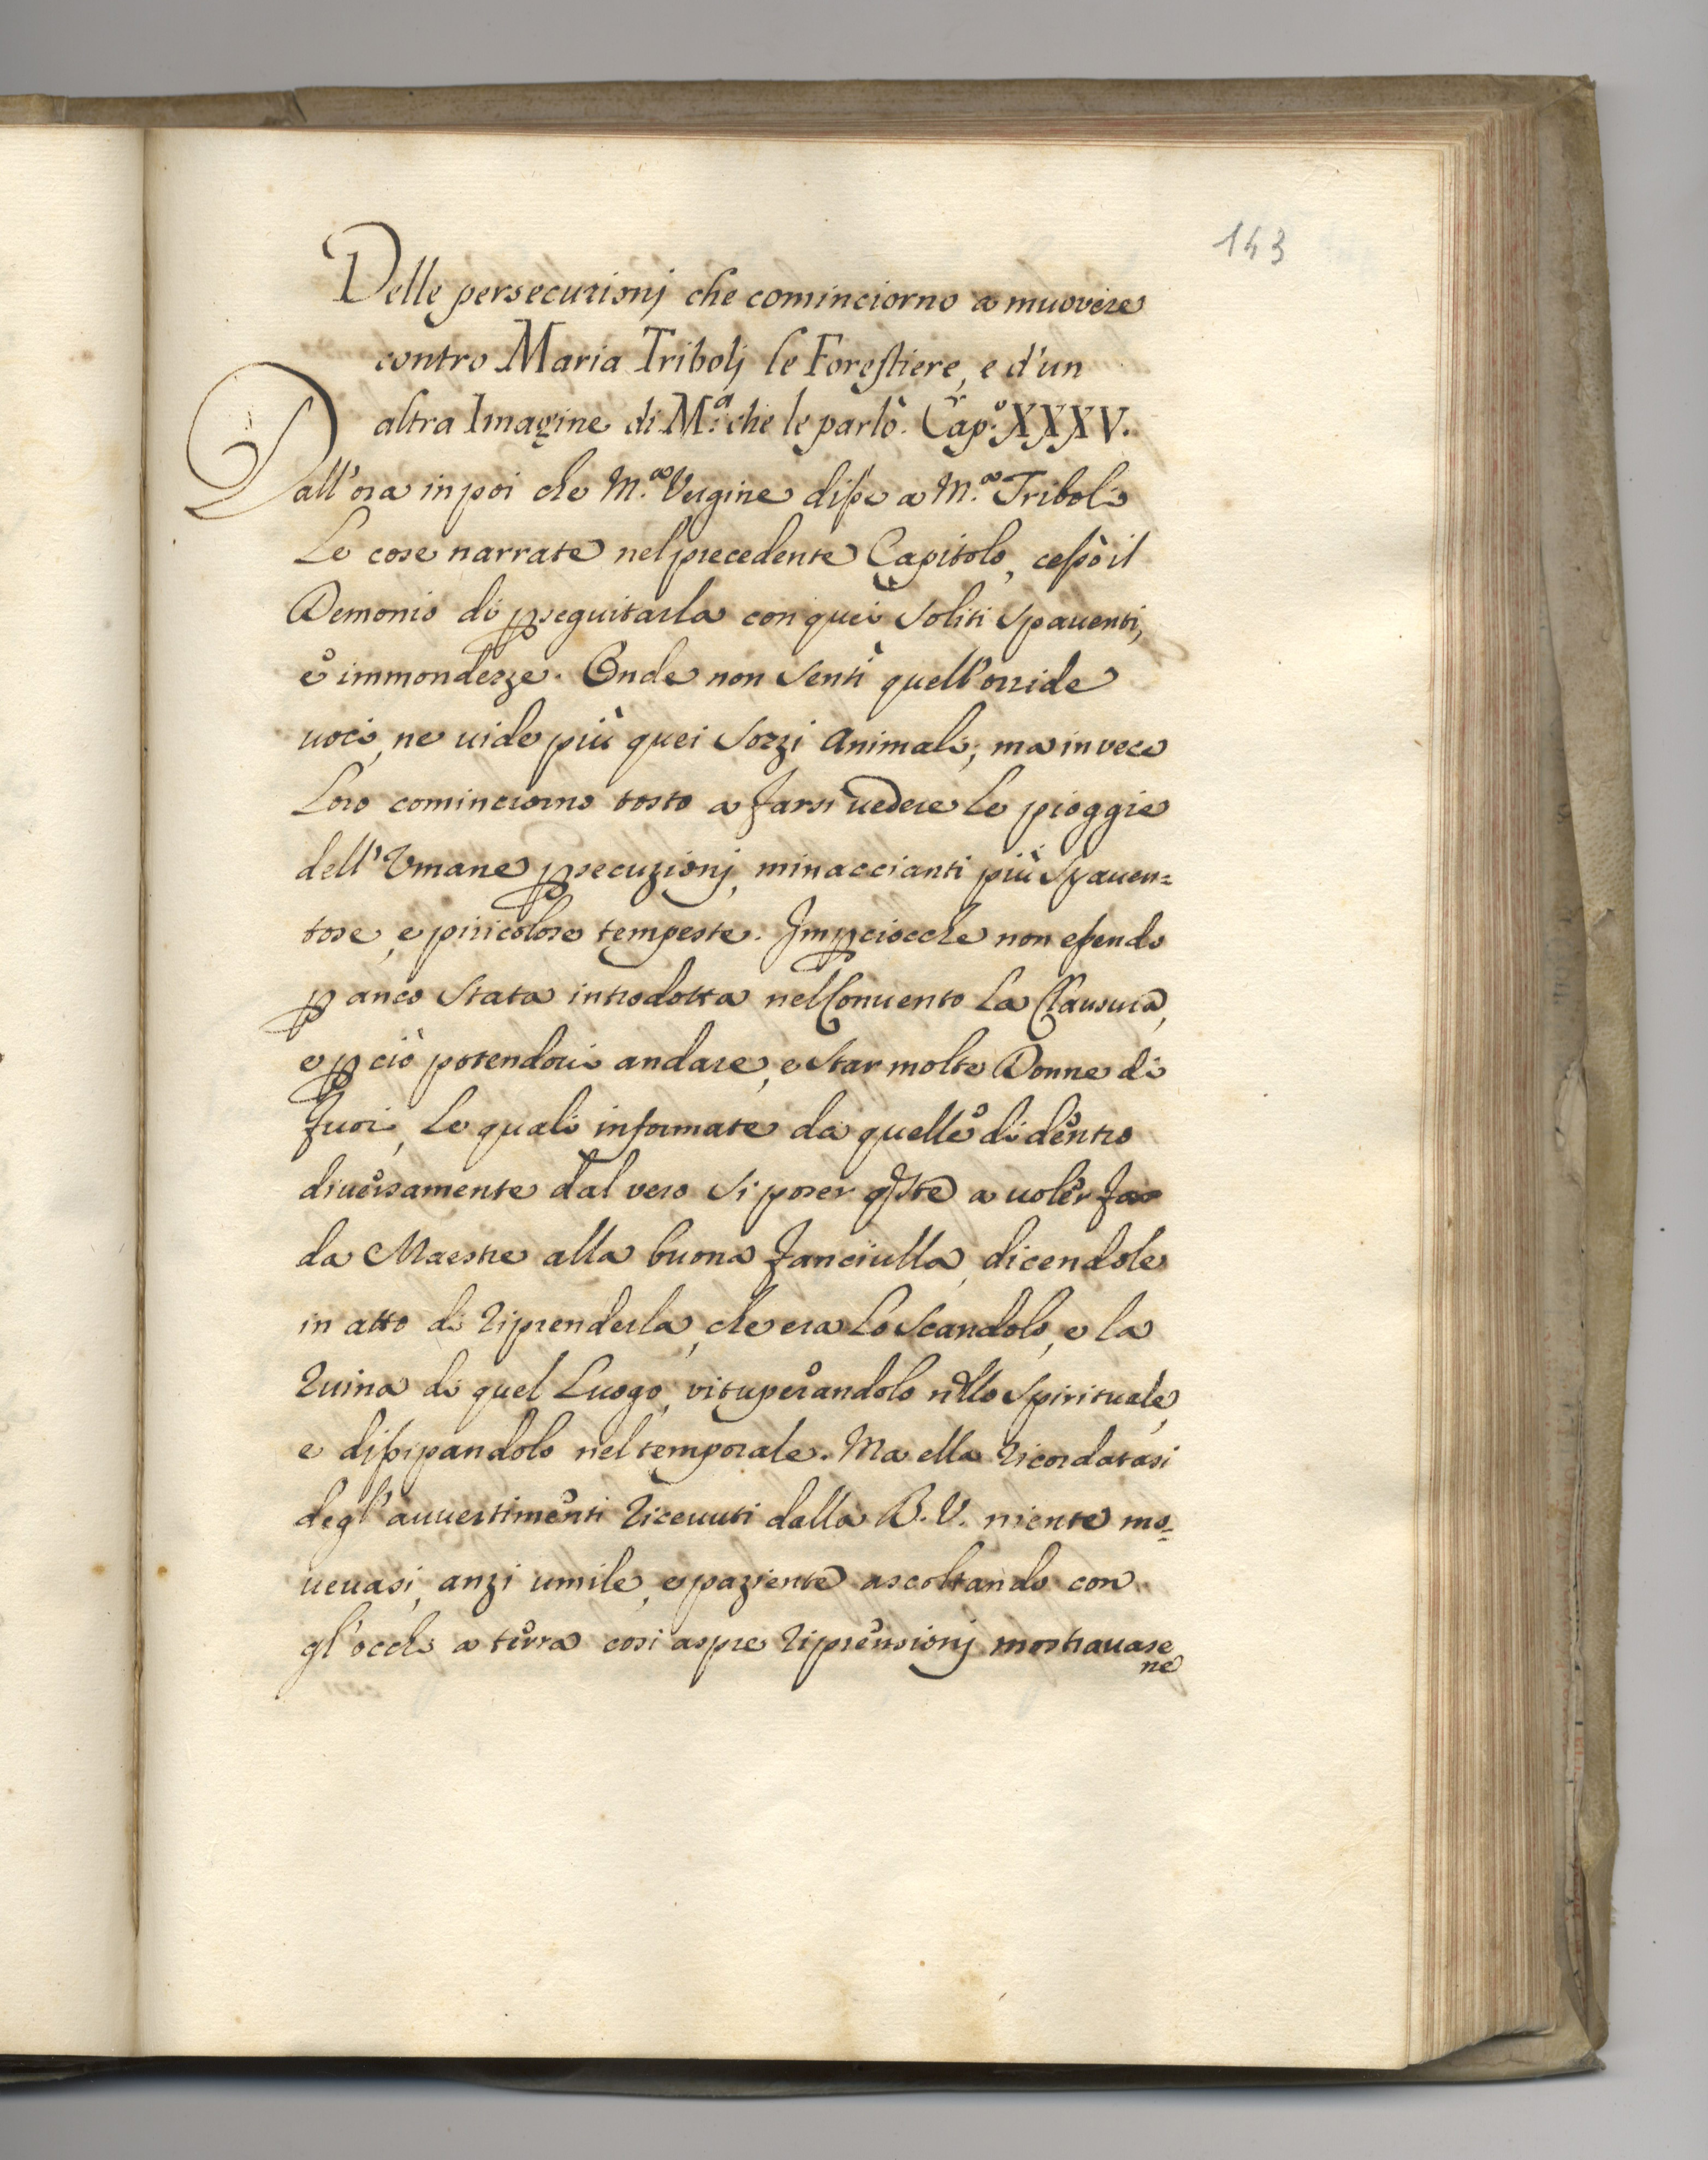 143
Delle persecuzionj che cominciorno a muovere
contro Maria Tribolj le Forestiere, e d'un
altra Imagine di M.ª che le parlò. Cap.º XXXV.
Dall'ora in poi che M.ª Vergine disse a M.ª Triboli
Le cose narrate nel precedente Capitolo, cessò il
Demonio di pseguitarla con quei soliti spauenti,
e immondezze. Onde non sentì quell'orride
uoci, ne uide più quei sozzi Animali; ma in vece
Loro cominciorno tosto a farsi uedere le pioggie
dell'Vmane psecuzionj, minaccianti più spauen=
tose, e piricolose tempeste. Impciocche non essendo
p anco stata introdotta nel Conuento La Clausura,
e p ciò potendoui andare, e star molte Donne di
fuori, Le quali informate da quelle di dentro
diuersamente dal vero si poser qste a uoler far
da Maestre alla buona fanciulla, dicendole
in atto di riprenderla, che era Lo scandolo, e la
ruina di quel Luogo, vituperandolo nllo spirituale,
e dissipandolo nel temporale. Ma ella ricordatasi
degl'auuertimenti riceuuti dalla B. V. niente mo=
ueuasi, anzi umile, e paziente ascoltando con
gl'occhi a terra cosi aspre riprensionj mostrauase
ne